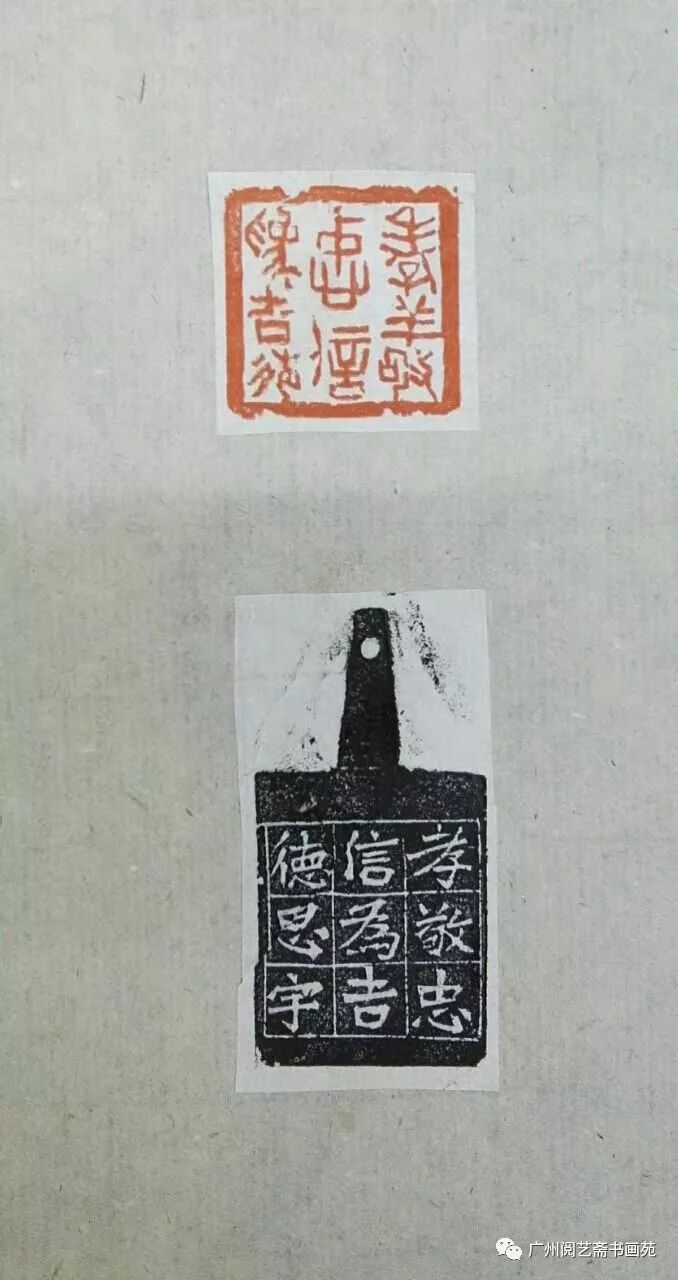 孝敬
忠信
為吉德
孝敬忠
信為吉
德思宇
广州阅艺斋书画苑